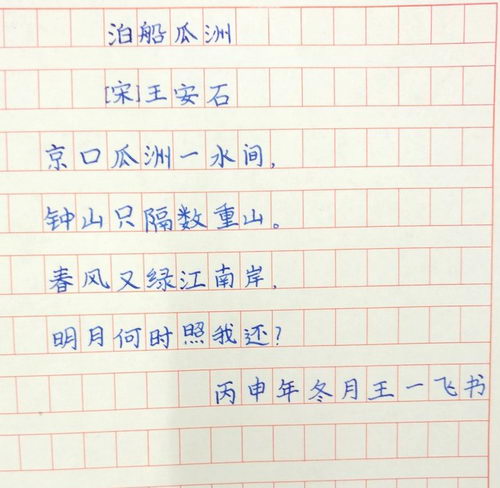 泊船瓜洲
[宋]王安石
京口瓜洲一水间,
钟山只隔数重山。
春风又绿江南岸,
明月何时照我还?
丙申年冬月王一飞书